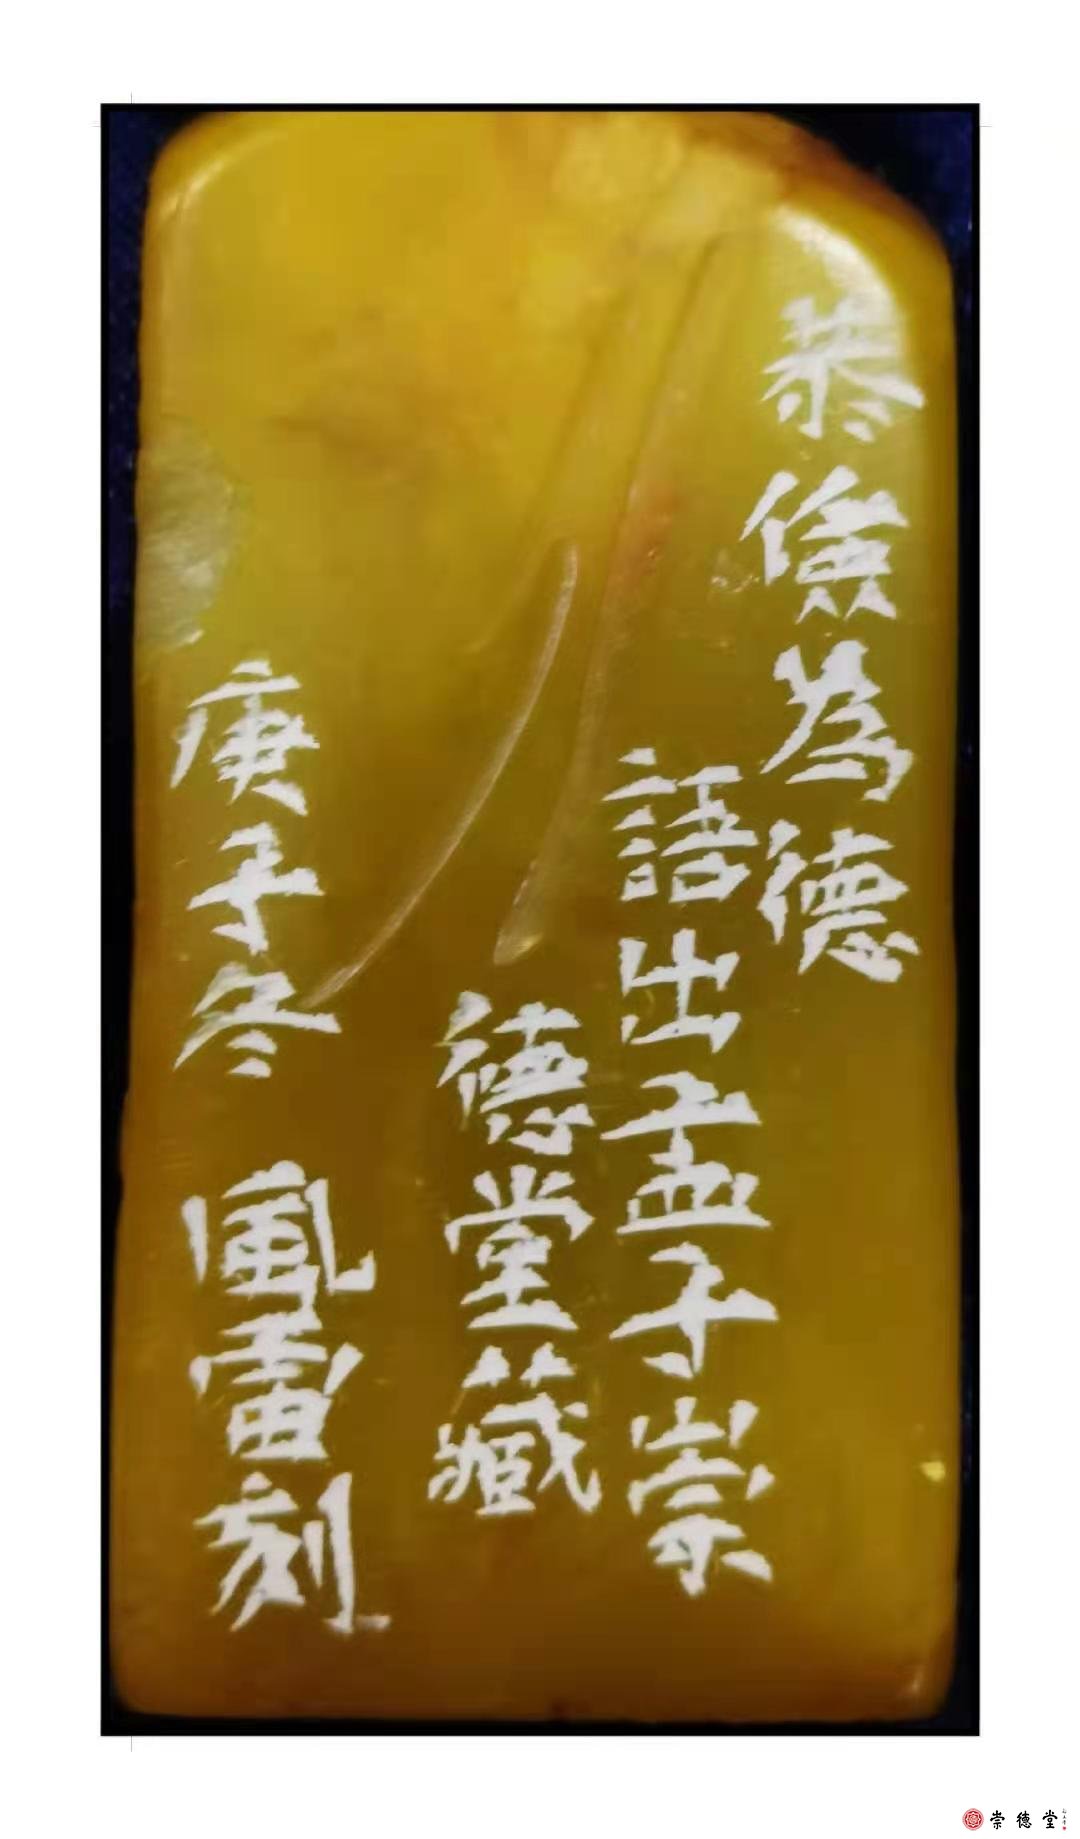 恭儉為德
語出孟子崇
德堂藏
庚子冬 風雷刻
崇德堂